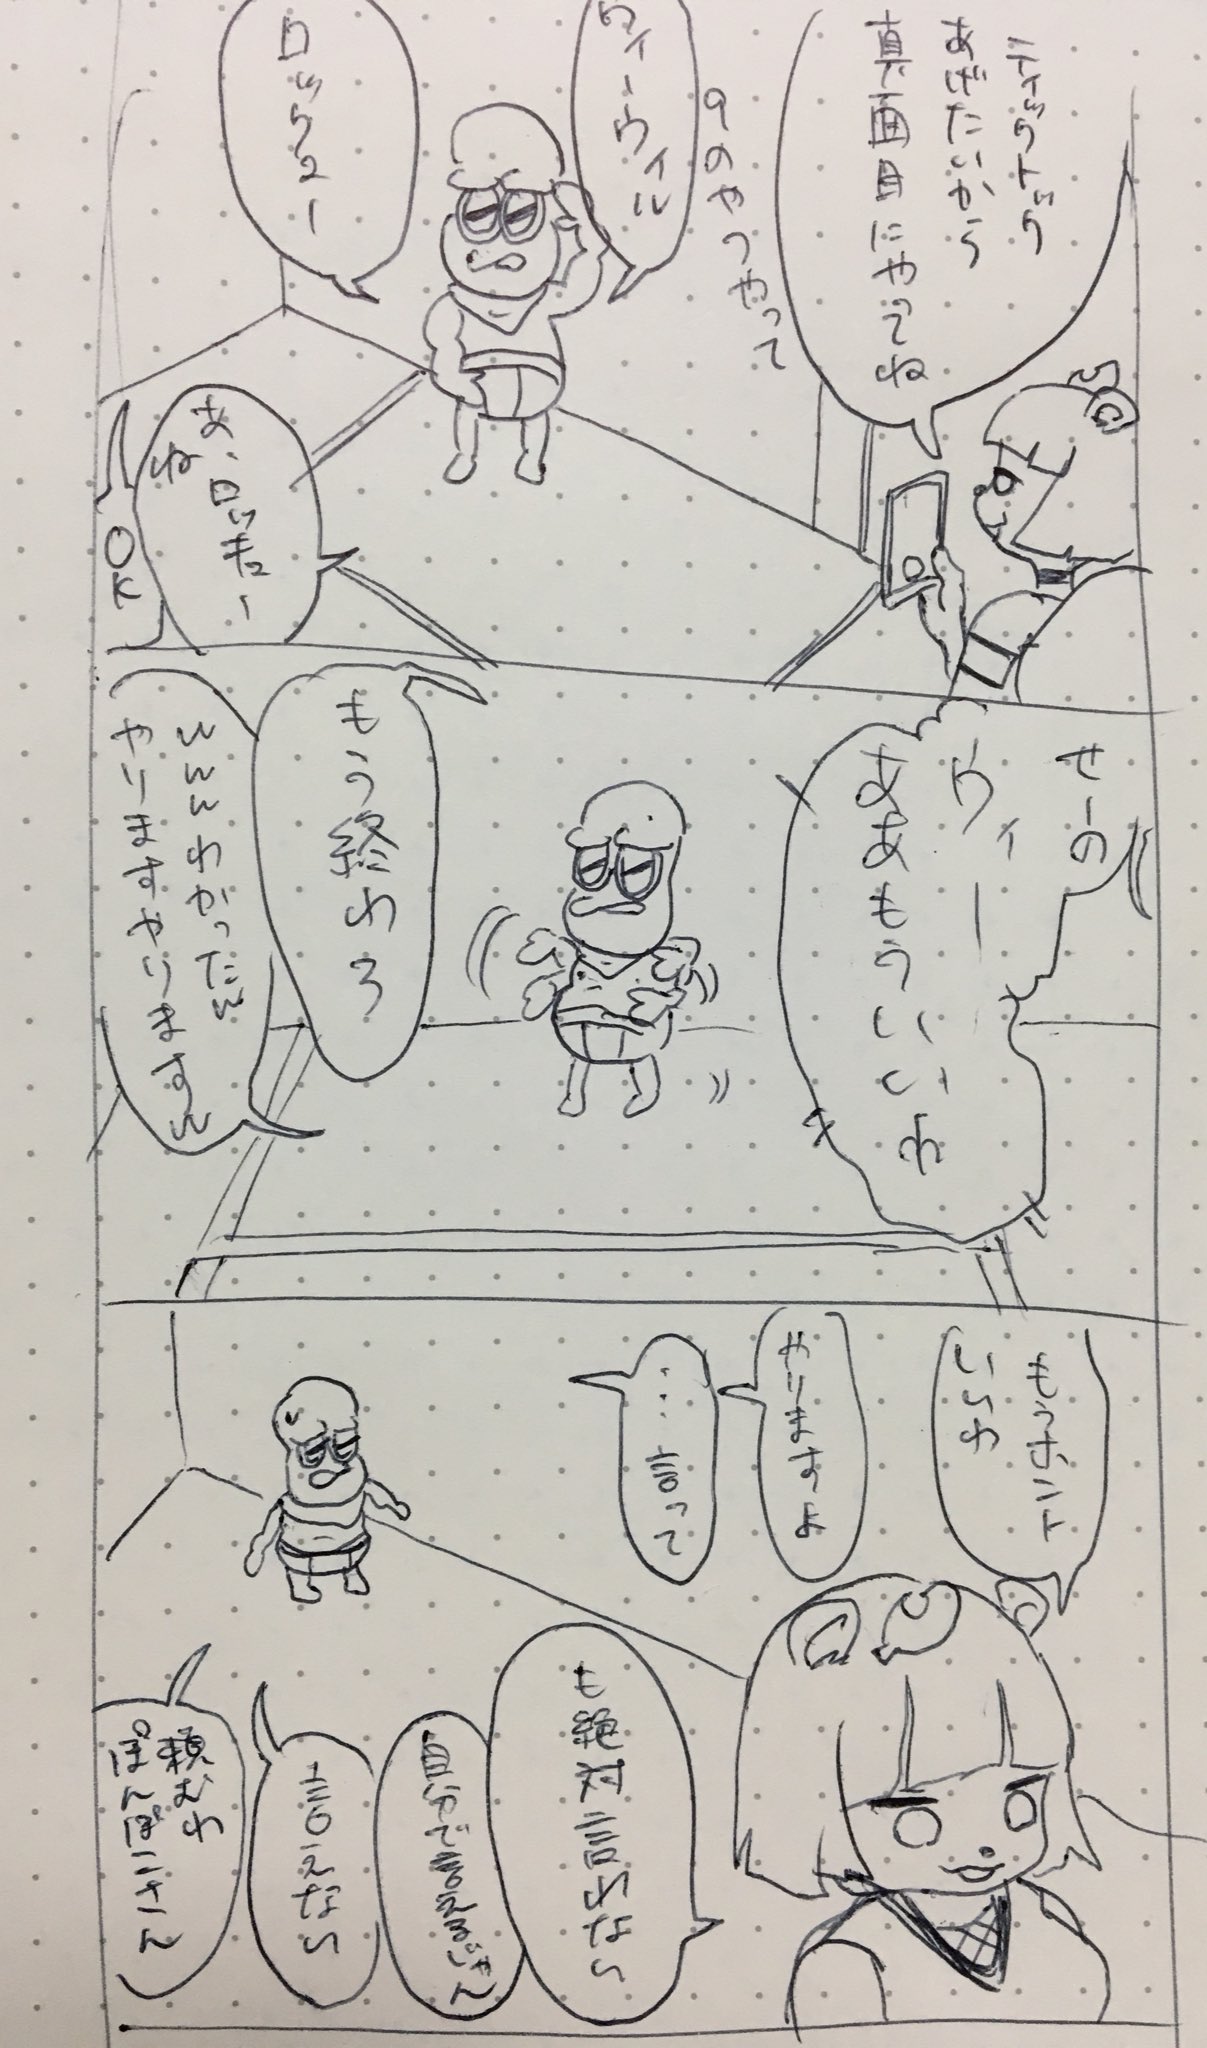 ティックトック
あげたいから
真面目にやってね
Qのやつやって
ウィーウィル
ロックユー
あ、ロッキュー
ね
OK
せーの
ウィー
ああもういいわ
もう終わろ
んんんわかったん
やりますやりますん
もう
いいわ
やりますよ
…言って
も絶対言わない
自分で言えるじゃん
言えない
頼むわ
ぽんぽこさん